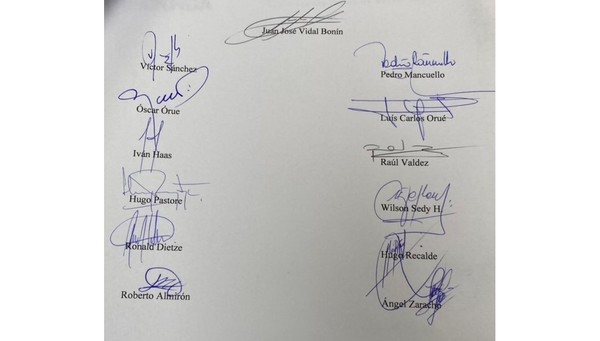 Juan José Vidal Bonín
Víctor Sánchez
Pedro Mancuello
Óscar Orue
Luis Carlos Orué
Iván Haas
Raúl Valdez
Hugo Pastore
Wilson Sedy H.
Ronald Dietze
Hugo Recalde
Roberto Almirón
Ángel Zaracho